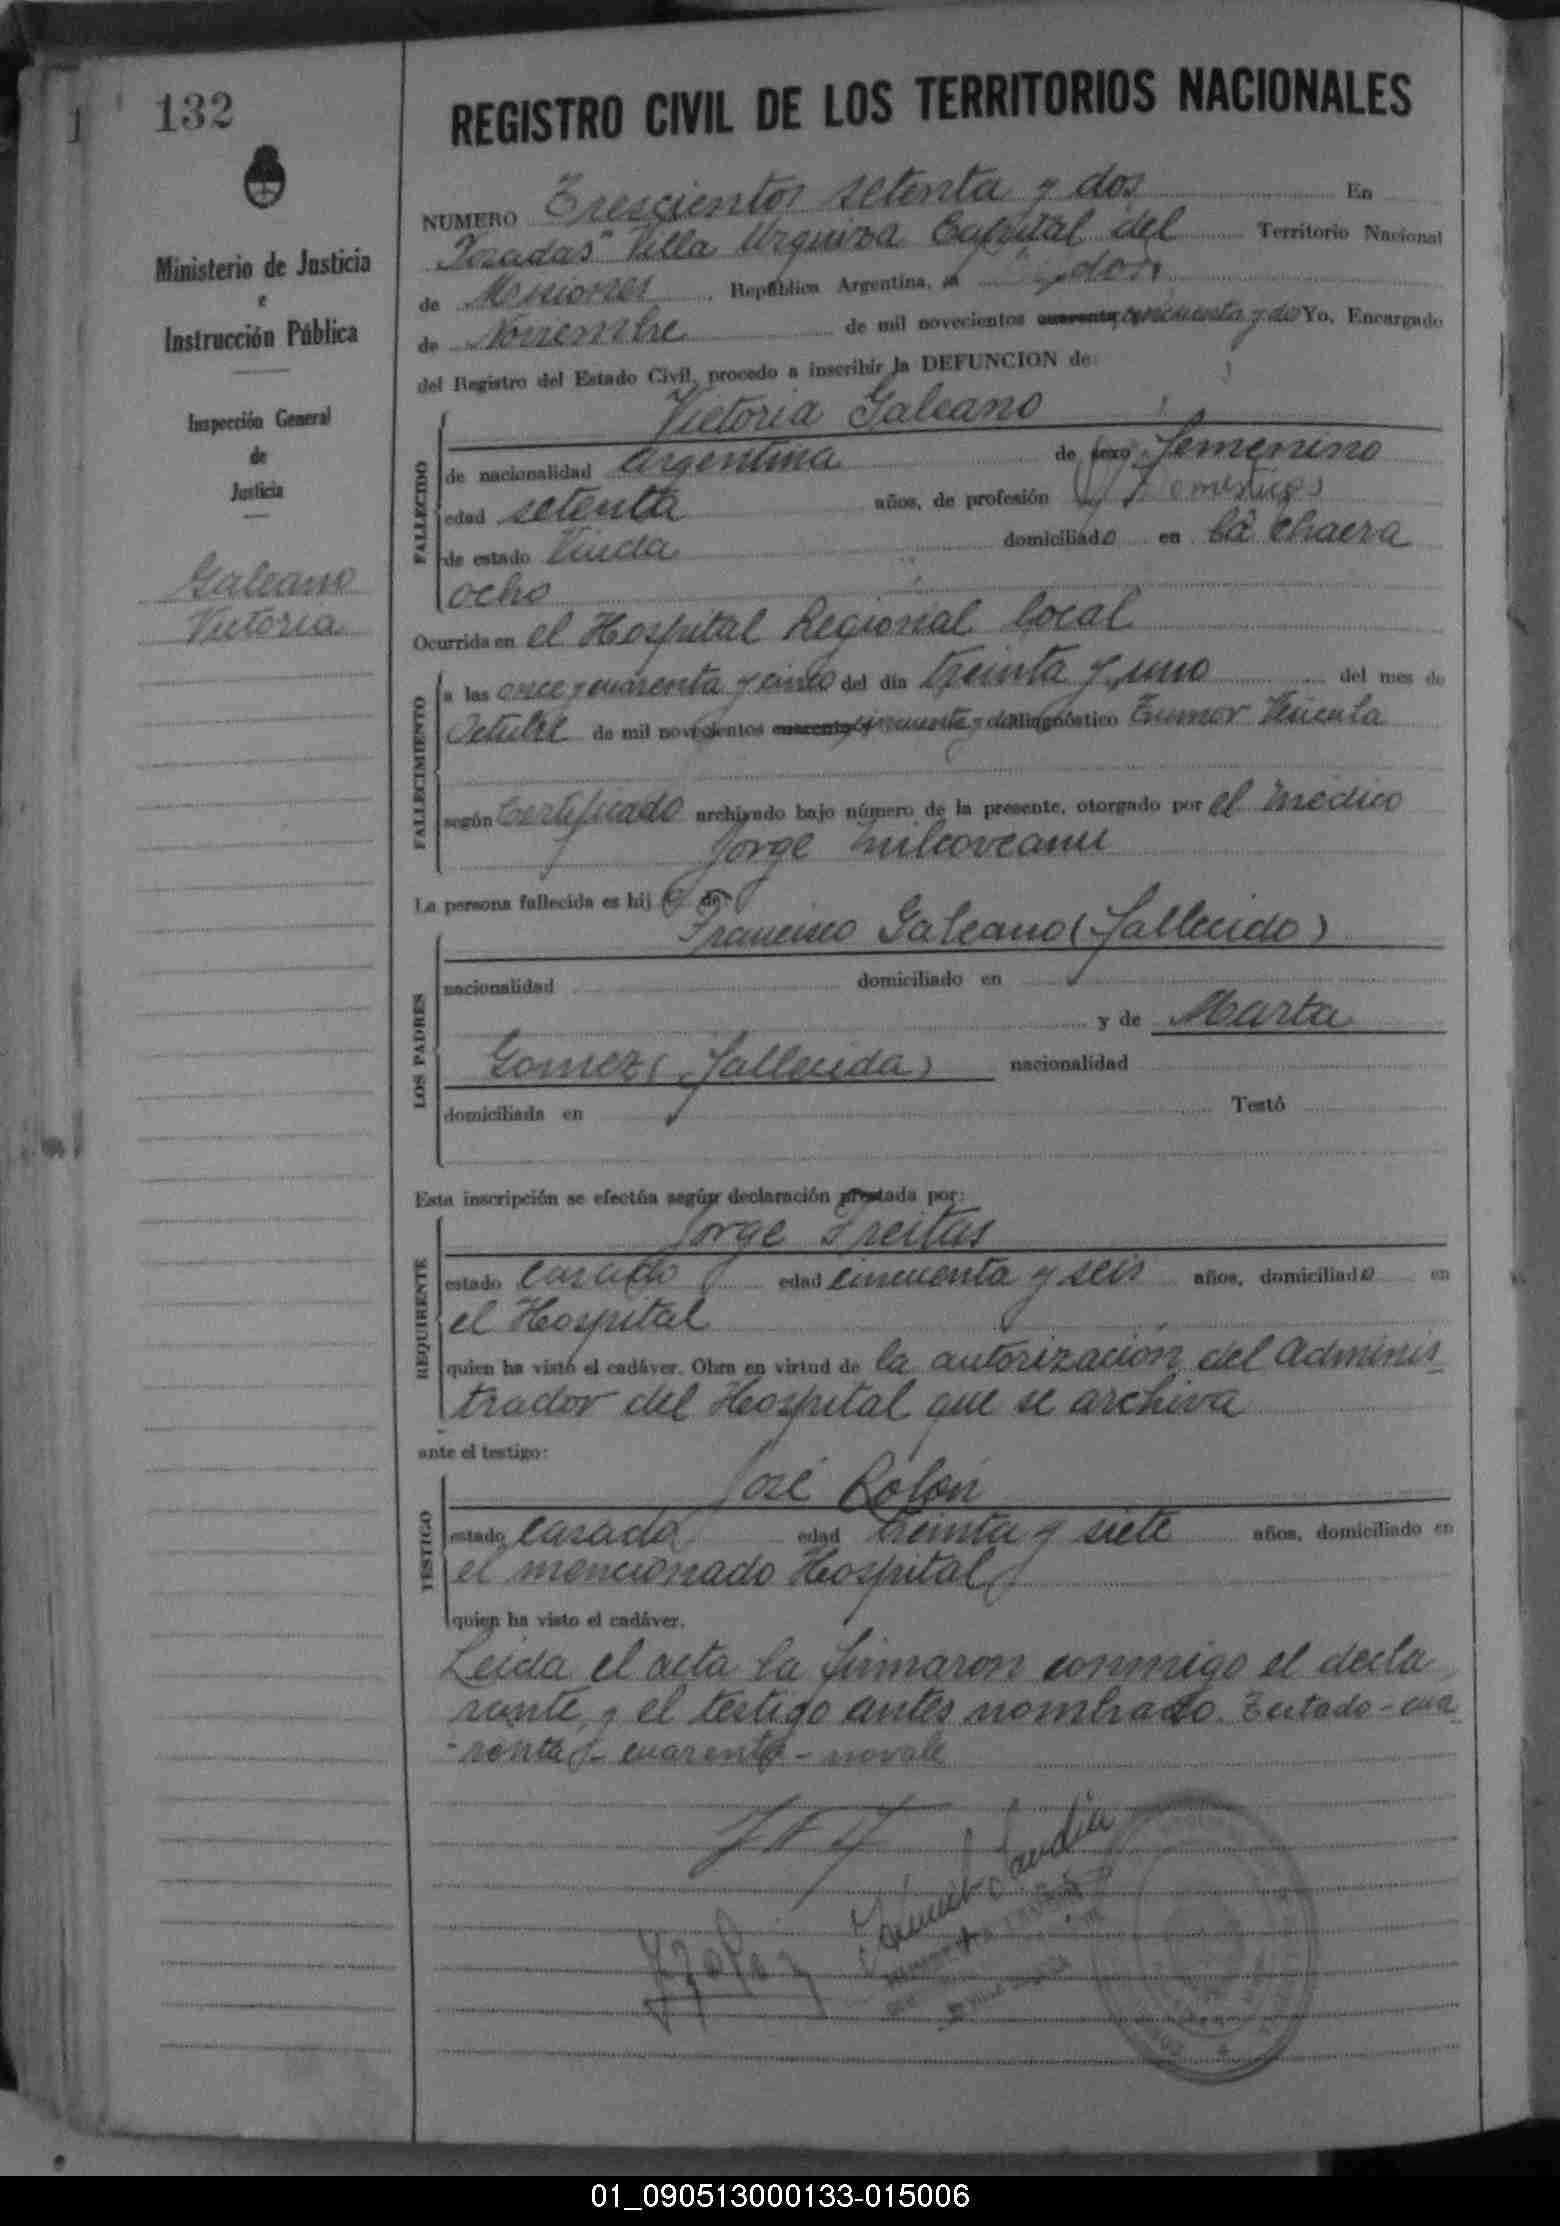 132
Ministerio de Justicia
e
Instrucción Pública
Inspección General
de
Justicia
Galeano
Victoria
REGISTRO CIVIL DE LOS TERRITORIOS NACIONALES
NUMERO Trescientos setenta y dos En
Posadas" Villa Urquiza Capital del Territorio Nacional
de Misiones República Argentina, a dos
de Noviembre de mil novecientos cuarenta y cincuenta y dos Yo, Encargado
del Registro del Estado Civil, procedo a inscribir la DEFUNCION de:
Victoria Galeano
FALLECIDO
de nacionalidad argentina de sexo femenino
edad setenta años, de profesión Domésticos
de estado Viuda domiciliada en la chacra
ocho
Ocurrida en el Hospital Regional local
FALLECIMIENTO
a las once y cuarenta y cinco del día treinta y uno del mes de
Octubre de mil novecientos cuarenta cincuenta y dos diagnóstico Tumor Vesicula
según Certificado archivado bajo número de la presente, otorgado por el médico
Jorge Milcoveanu
La persona fallecida es hija de
LOS PADRES
Francisco Galeano (fallecido)
nacionalidad domiciliado en
y de Marta
Gomez (fallecida) nacionalidad
domiciliada en Testó
Esta inscripción se efectúa según declaración prestada por:
REQUIRENTE
Jorge Freitas
estado casado edad cincuenta y seis años, domiciliado en
el Hospital
quien ha visto el cadáver. Obra en virtud de la autorización del Adminis
trador del Hospital que se archiva
ante el testigo:
TESTIGO
José Rolón
estado casado edad treinta y siete años, domiciliado en
el mencionado Hospital
quien ha visto el cadáver.
Leida el acta la firmaron conmigo el decla
rante y el testigo antes nombrado. Testado - cua
renta y - cuarenta - no vale
01_090513000133-015006